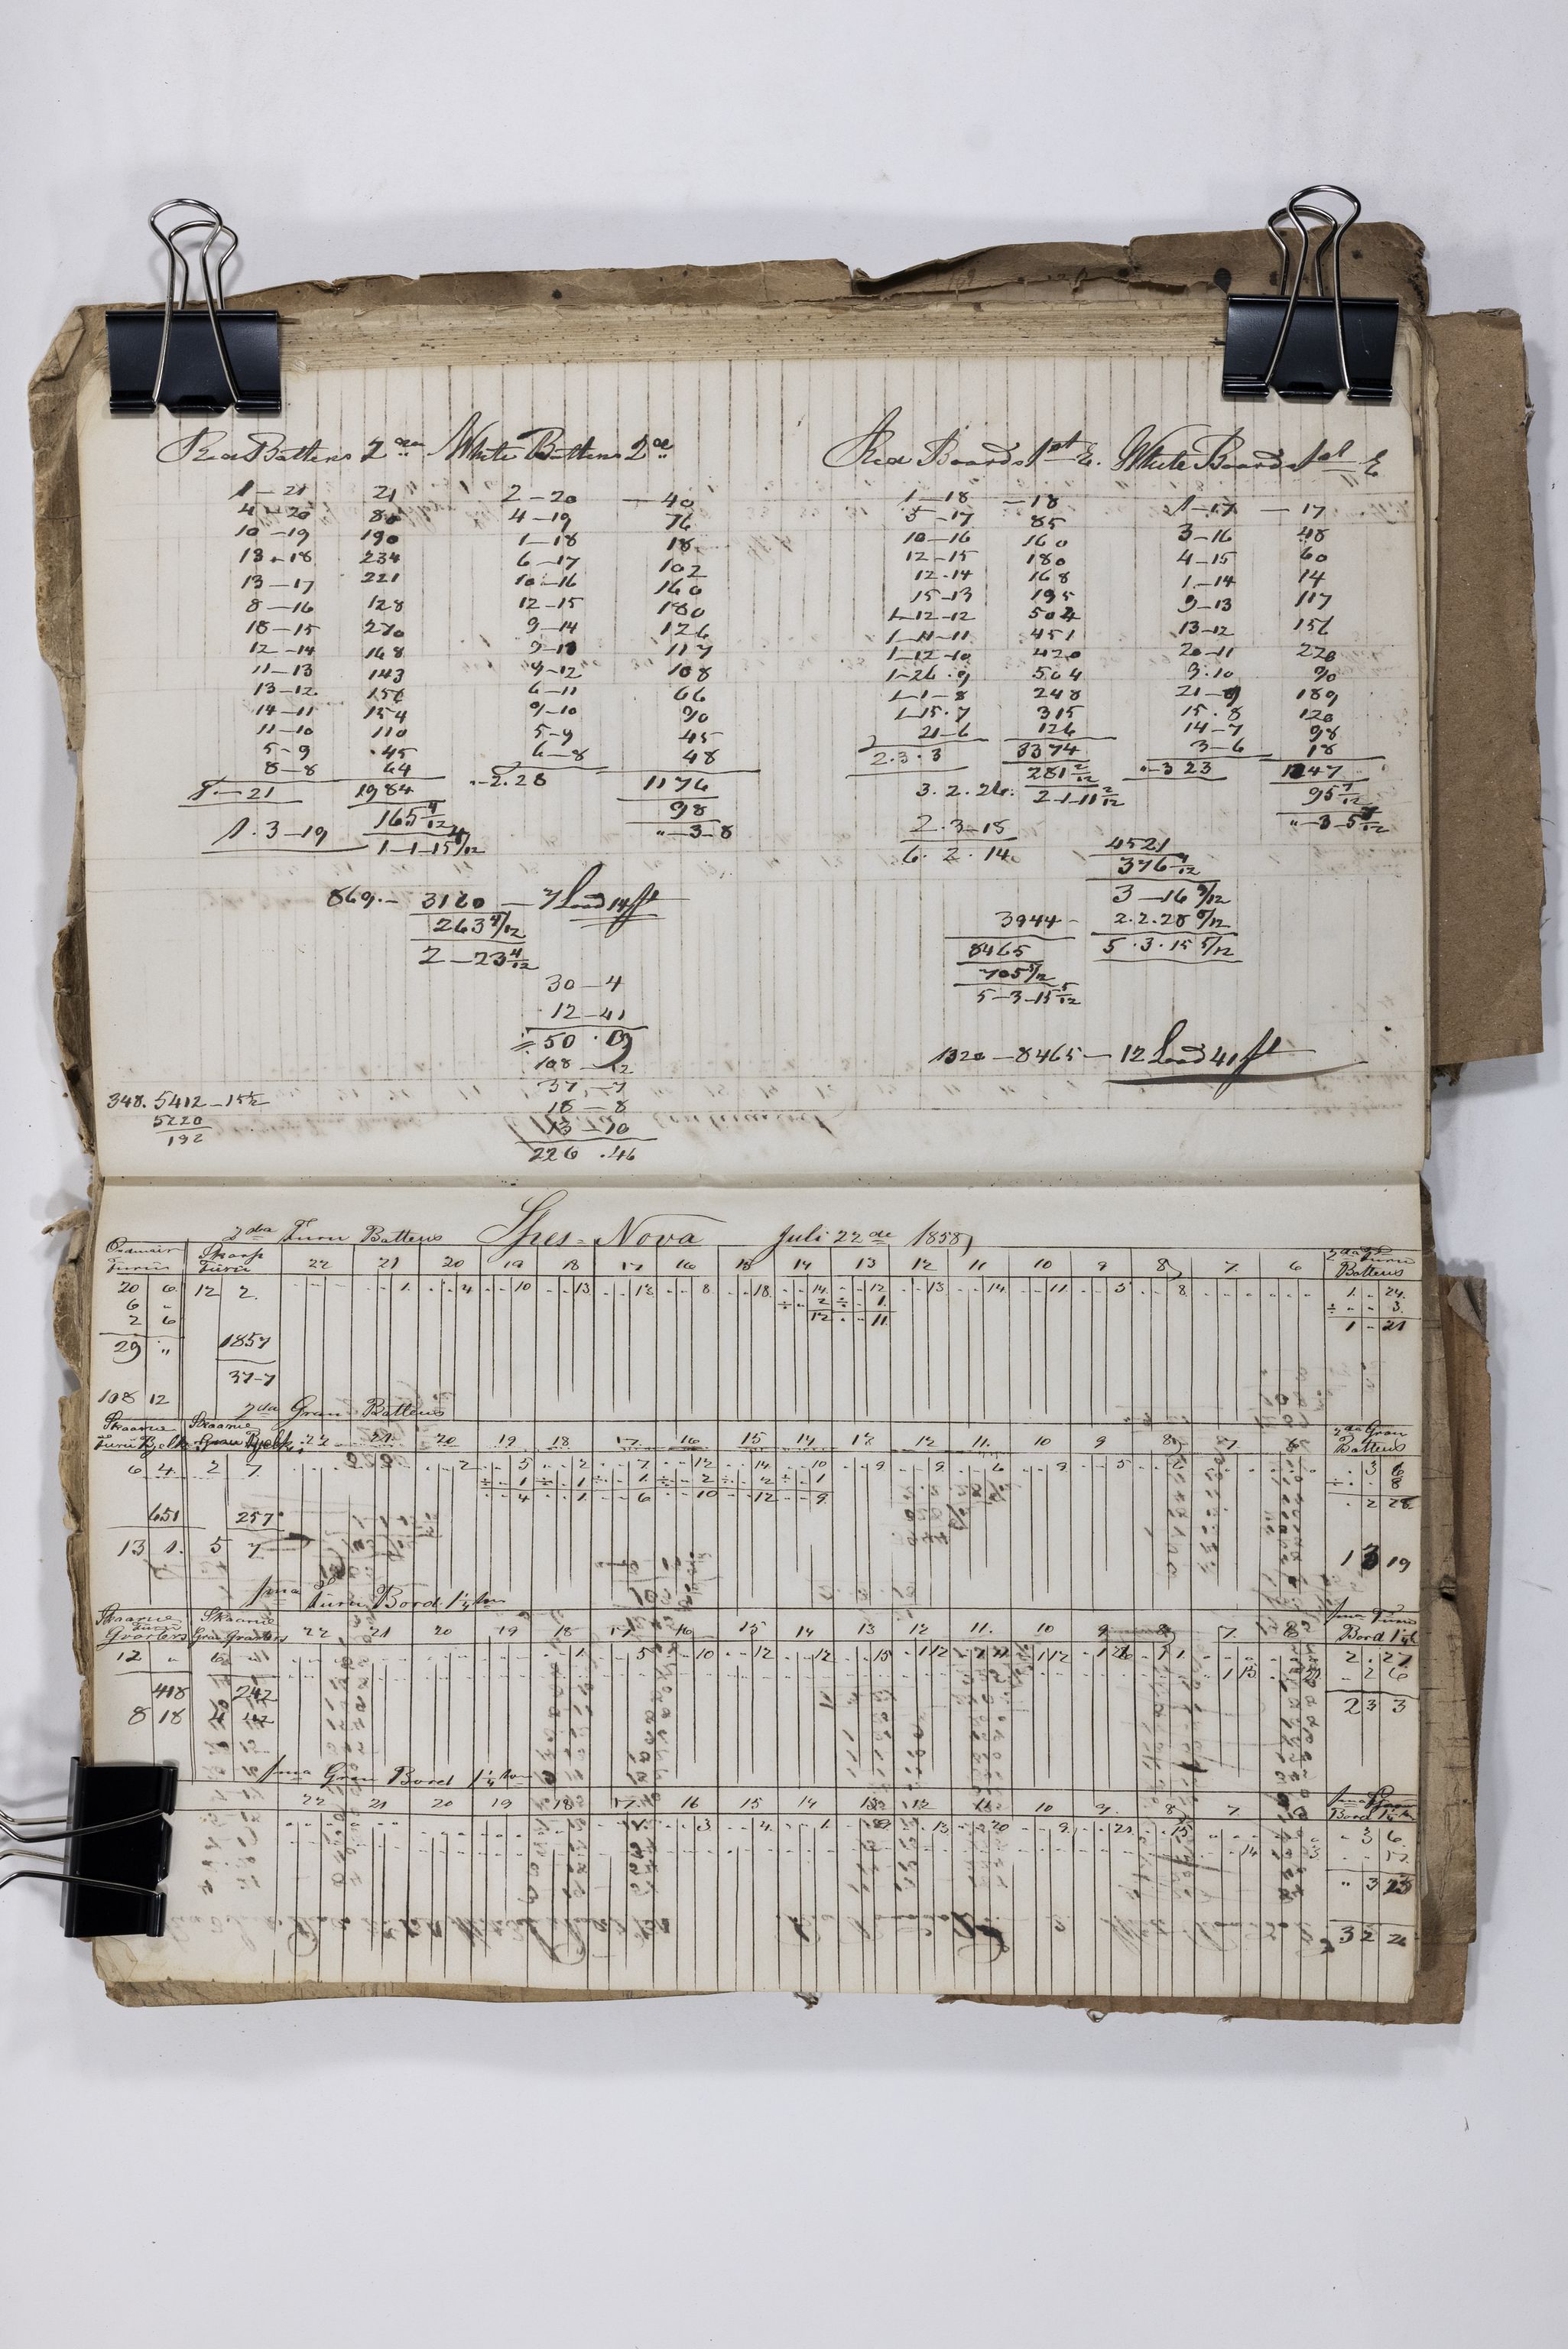 Red Battens 2de White Battens 2de Red Boards 1st E. White Boards 1st E
1–21 21 2–20 –40 1–18 –18 1–17 –17
4–20 80 4–19 76 5–17 85 3–16 48
10–19 190 1–18 18 10–16 160 4–15 60
13–18 234 6–17 102 12–15 180 1–14 14
13–17 221 10–16 160 12–14 168 9–13 117
8–16 128 12–15 180 15–13 195 13–12 156
18–15 270 9–14 126 1–12–12 504 20–11 220
12–14 168 9–13 117 1–11–11 451 9·10 90
11–13 143 9–12 108 1–12–10 420 21–9 189
13–12 156 6–11 66 1–26·9 504 15·8 120
14–11 154 9–10 90 1–1–8 248 14–7 98
11–10 110 5–9 45 1–15·7 315 3–6 18
5–9 45 6–8 48 21–6 126
8–8 64 2·3·3 3374 "–3 23 1147
1984 "–2·28 1176 281 2/12 95 7/12
1·3–19 165 4/12 98 3·2·26 2–1–11 2/12 "–3–5 7/12
1–1–15 4/12 "–3–8 2·3–18
6·2·14
4521
376 9/12
3–16 9/12
869·– 3120 – 7 Load 14 ft
263 4/12
2–23 4/12
3944 2·2·28 8/12
8465 5·3·15 5/12
705 5/12
5–3–15 5/12
30–4
12–41
50·19
108–12
37–7
18–8
13–10
226·46
1320–8465–12 Load 41 ft
348·5412–15½
5220
192
2da Furu Battens Spes=Nova Juli 22de 1858
Ordinair Furu Skarp Furu 22 21 20 19 18 17 16 15 14 13 12 11 10 9 8 7 6 2da Furu Battens
20 6 12 2 1 4 10 13 13 8 18 14 12 13 14 11 5 8 1 " 24
6 " ÷ 2 ÷ 1 ÷ 3
2 6 12 11 1 " 21
29 " 1857
37–7
108 12
2da Gran Battens
Skaarne Furu Bjelk Skaarne Gran Bjelk 22 21 20 19 18 17 16 15 14 13 12 11 10 9 8 7 6 2da Gran Battens
6 4 2 7 2 5 2 7 12 14 10 9 9 6 9 5 6 3 6
÷ 1 ÷ 1 ÷ 1 ÷ 2 ÷ 2 ÷ 1 ÷ 8
4 1 6 10 12 9 2 28
651 257
13 1 5 7 1 3 19
1ma Furu Bord 1¼ tom
Skaarne Furu Qvarters Skaarne Gran Qvarters 22 21 20 19 18 17 16 15 14 13 12 11 10 9 8 7 6 1ma Furu Bord 1¼
12 " 6 " 1 5 10 12 12 15 112 111 112 126 1 1 2 " 27
1 15 21 2 6
418 242 2 3 3
8 18
1ma Gran Bord 1¼ tom
22 21 20 19 18 17 16 15 14 13 12 11 10 9 8 7 6 1ma Gran Bord 1¼
1 3 4 1 9 13 20 9 21 15 " 3 6
14 3 17
" 3 23
3 2 26